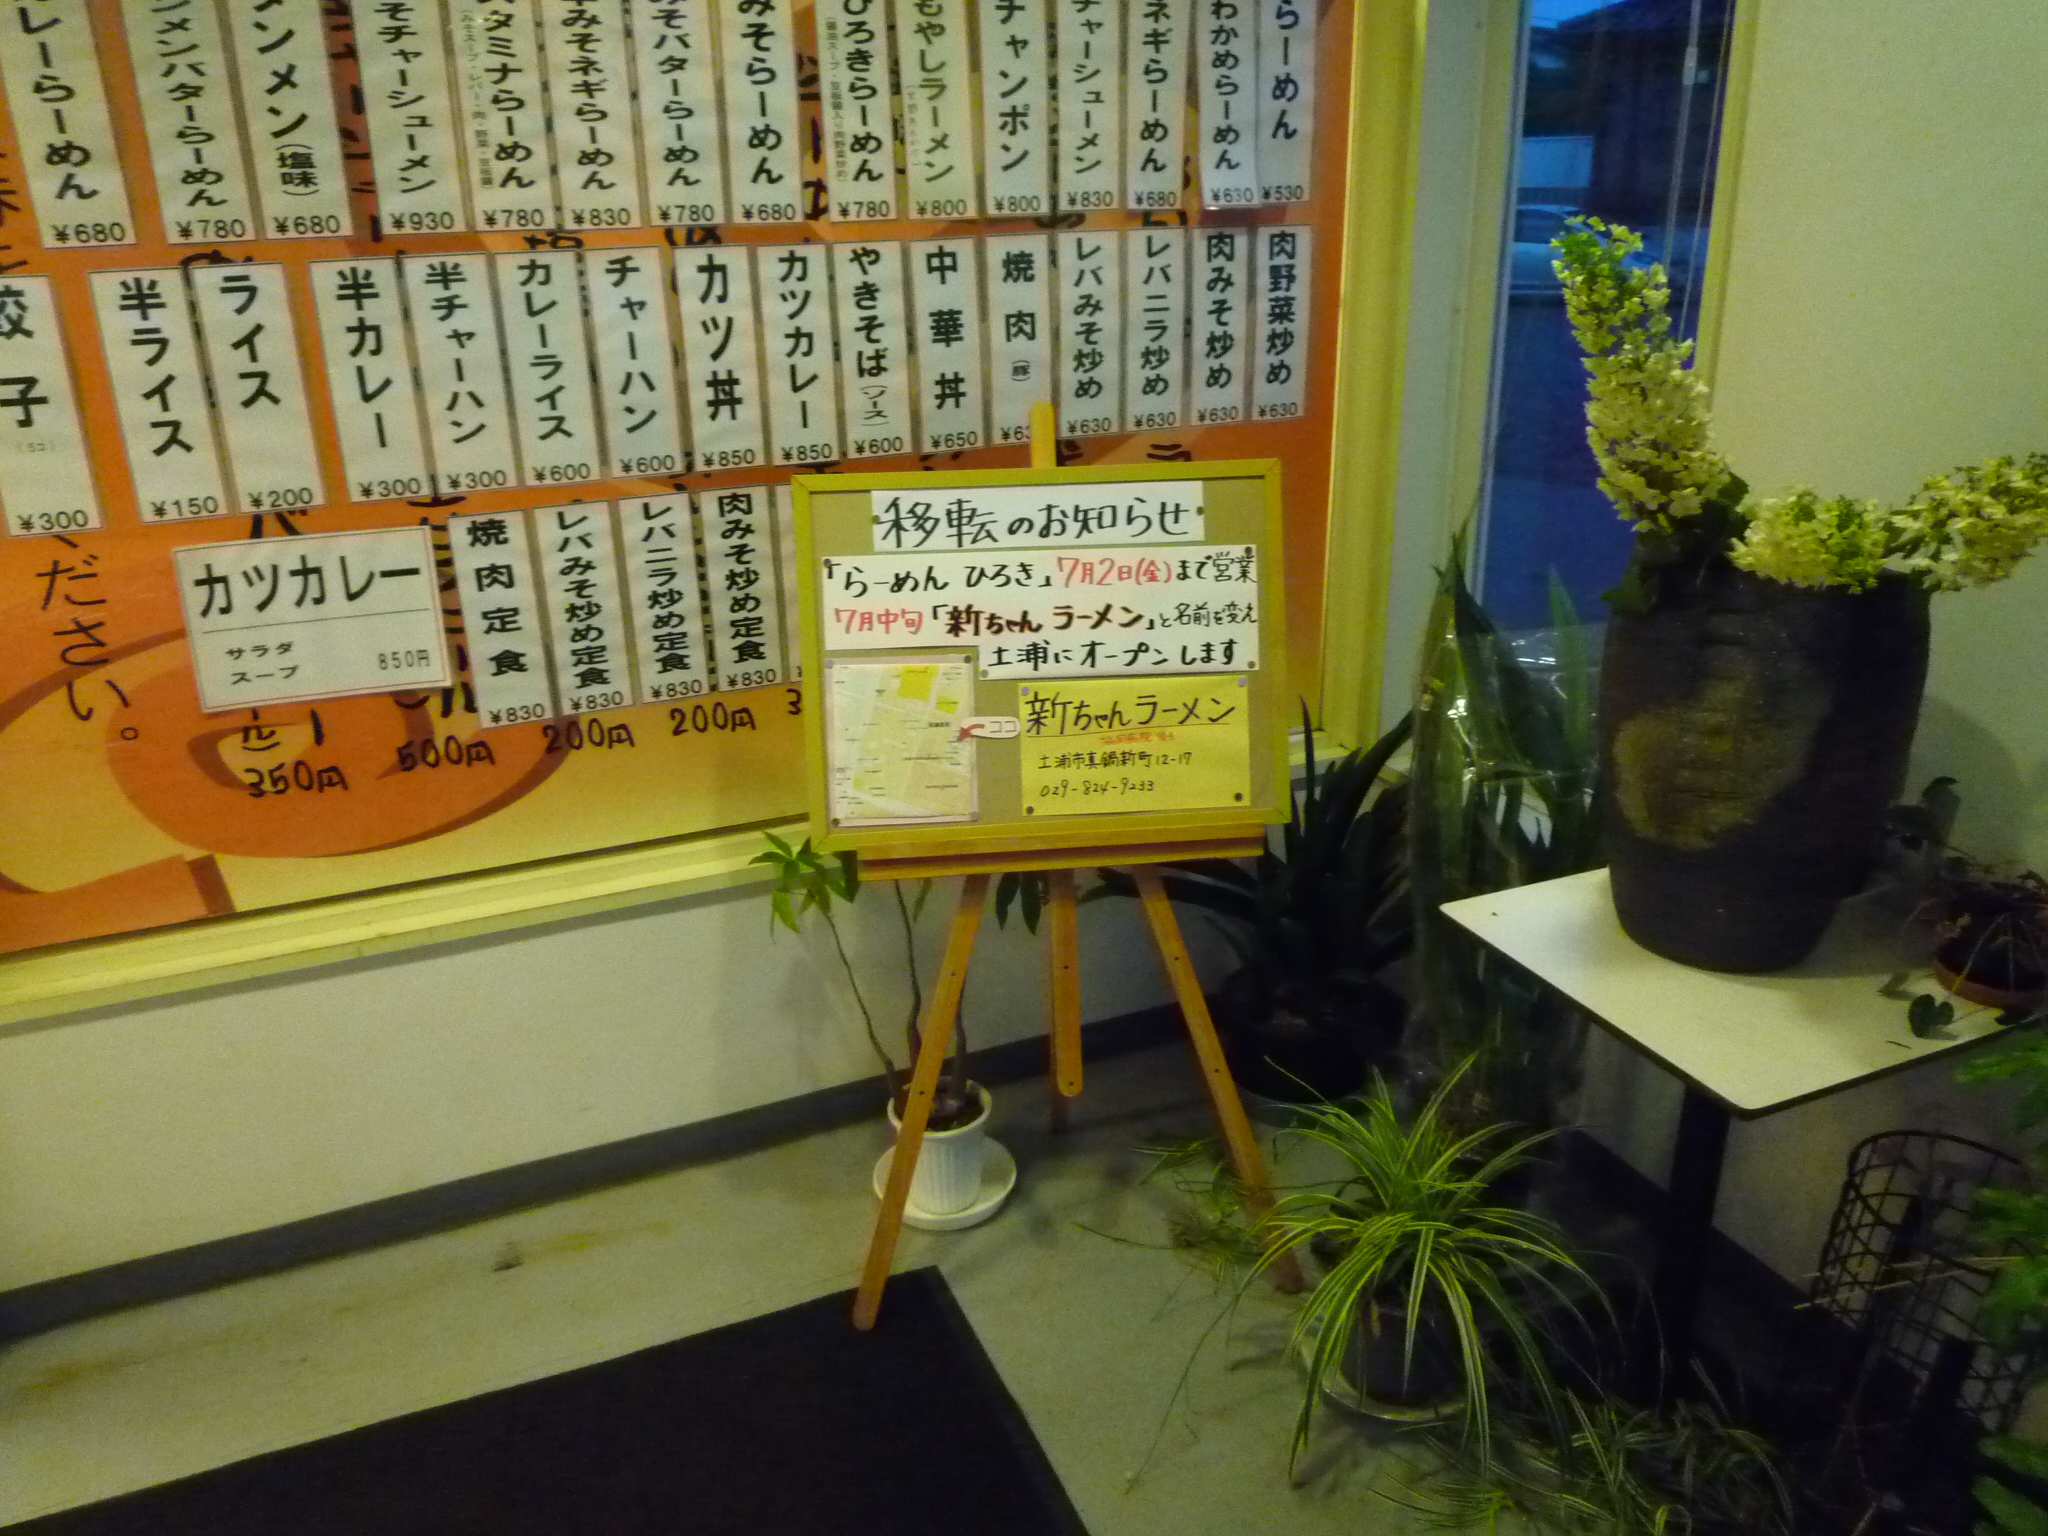 レーらーめん
¥680
ンメンバターらーめん
¥780
ンメン(塩味)
¥680
そチャーシューメン
¥930
スタミナらーめん
¥780
みそネギらーめん
¥830
みそバターらーめん
¥780
みそらーめん
¥680
ひろきらーめん
¥780
もやしラーメン
¥800
チャンポン
¥800
チャーシューメン
¥830
ネギらーめん
¥680
わかめらーめん
¥630
らーめん
¥530
餃子
(5コ)
¥300
半ライス
¥150
ライス
¥200
半カレー
¥300
半チャーハン
¥300
カレーライス
¥600
チャーハン
¥600
カツ丼
¥850
カツカレー
¥850
やきそば(ソース)
¥600
中華丼
¥650
焼肉(豚)
レバみそ炒め
¥630
レバニラ炒め
¥630
肉みそ炒め
¥630
肉野菜炒め
¥630
ください。
カツカレー
サラダ
スープ
850円
焼肉定食
¥830
レバみそ炒め定食
¥830
レバニラ炒め定食
¥830
肉みそ炒め定食
¥830
350円
500円
200円
200円
移転のお知らせ
「らーめん ひろき」7月2日(金)まで営業
7月中旬「新ちゃん ラーメン」と名前を変え
土浦にオープンします
ココ
新ちゃんラーメン
土浦市真鍋新町12-17
029-824-9233